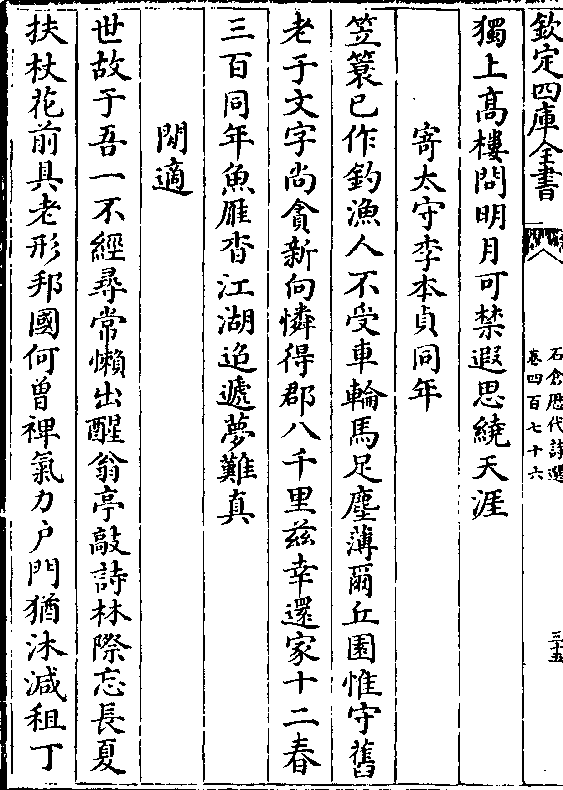 欽定四庫全書
石倉歴代詩選
卷四百七十六
三十五
獨上髙樓問明月可禁遐思繞天涯
寄太守李本貞同年
笠簑已作釣漁人不受車輪馬足塵薄爾丘園惟守舊
老于文字尚貪新向憐得郡八千里兹幸還家十二春
三百同年魚雁杳江湖迢遞夢難真
閒適
世故于吾一不經尋常懶出醒翁亭敲詩林際忘長夏
扶杖花前具老形邦國何曽禆氣力户門猶沐減租丁